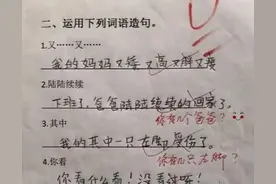 二、运用下列词语造句。
1.又……又……
我的妈妈又矮又高又胖又瘦
2.陆陆续续
下班了,爸爸陆陆续续的回家了。
你有几个爸爸?
3.其中
我的其中一只左脚受伤了。
你有几只左脚?
4.你看
你看什么看!没看过呀!